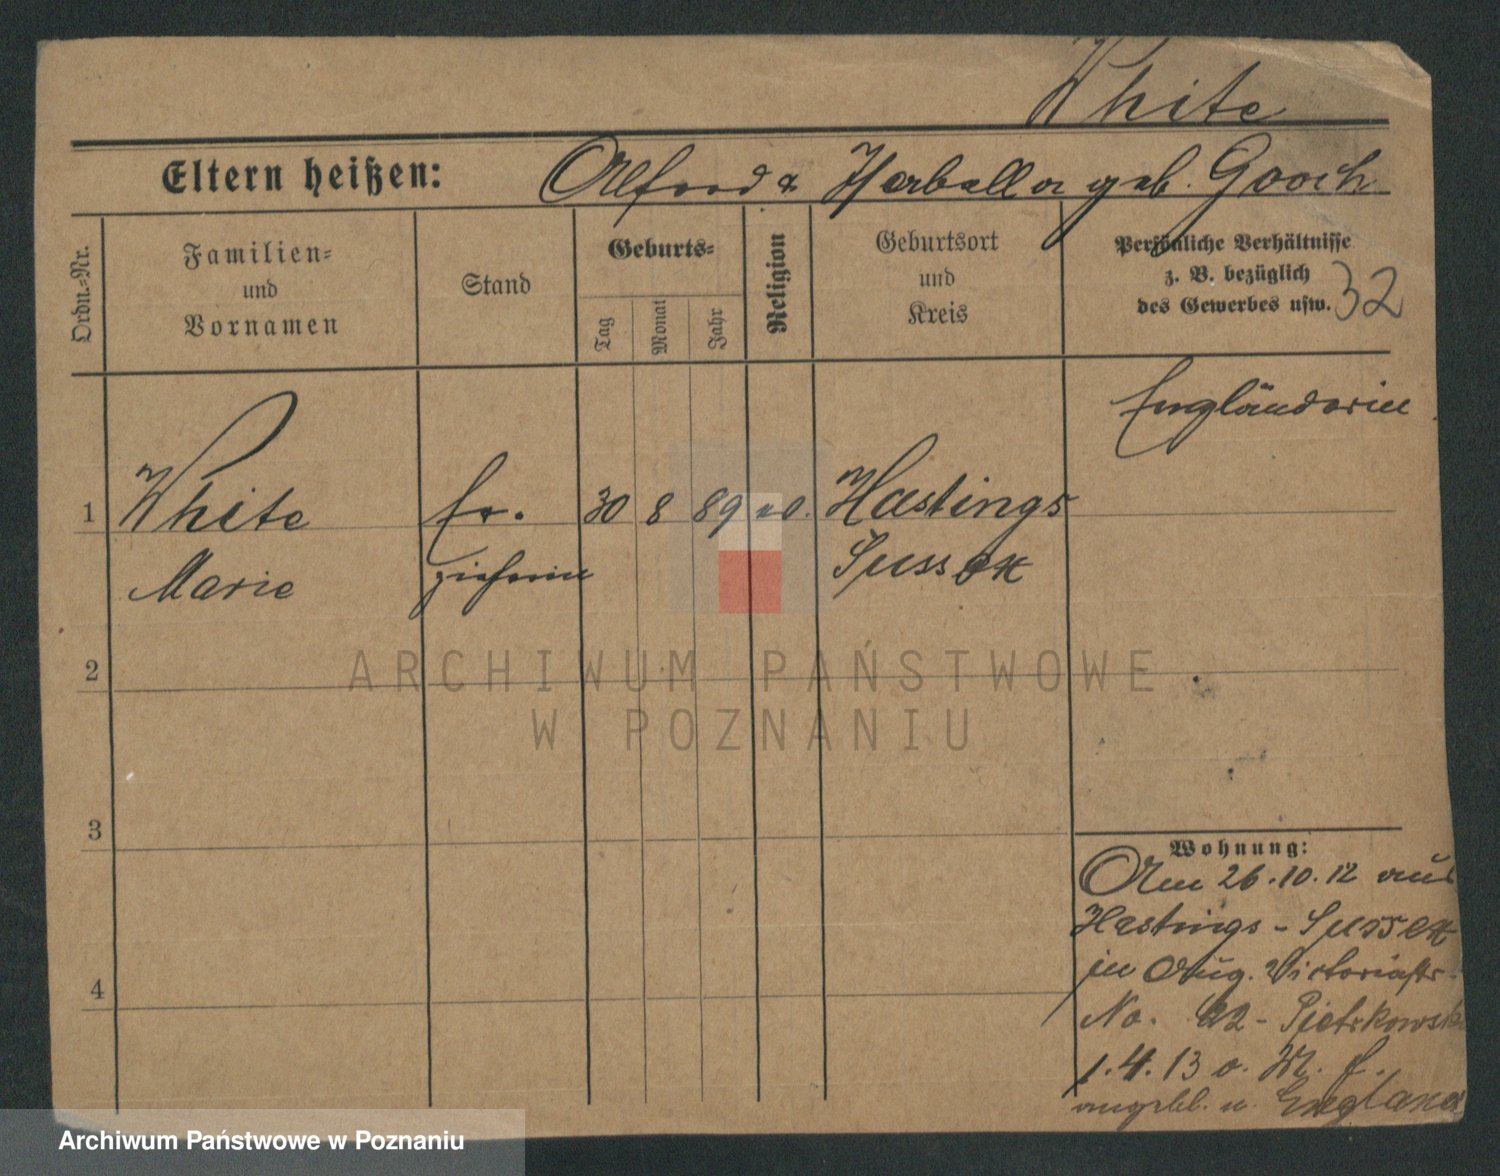 White
Eltern heißen: Alfred & geb. Gooch
Ordn.-Nr.
Familien-
und
Vornamen
Stand
Geburts-
Tag
Monat
Jahr
Religion
Geburtsort
und
Kreis
Persönliche Verhältnisse
z. B. bezüglich
des Gewerbes usw.
32
Engländerin
1 White Er- 30 8 89 Hastings
Marie zieherin Sussex
2
3
4
Wohnung:
Am 26.10.12 aus
Hastings - Sussex
in Aug. Victoriastr.
No. - Pietrkowski
1.4.13 o. M. f.
angebl. n. England
ARCHIWUM PAŃSTWOWE
W POZNANIU
Archiwum Państwowe w Poznaniu